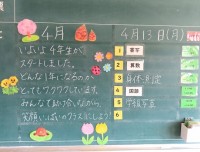 4月
いよいよ4年生が
スタートしました。
どんな1年になるのか
とってもワクワクしています。
みんなで助け合いながら
笑顔いっぱいのクラスにしよう!
4月13日(月)
1
2 算数
3 身体測定
4 国語
5 学級写真
6